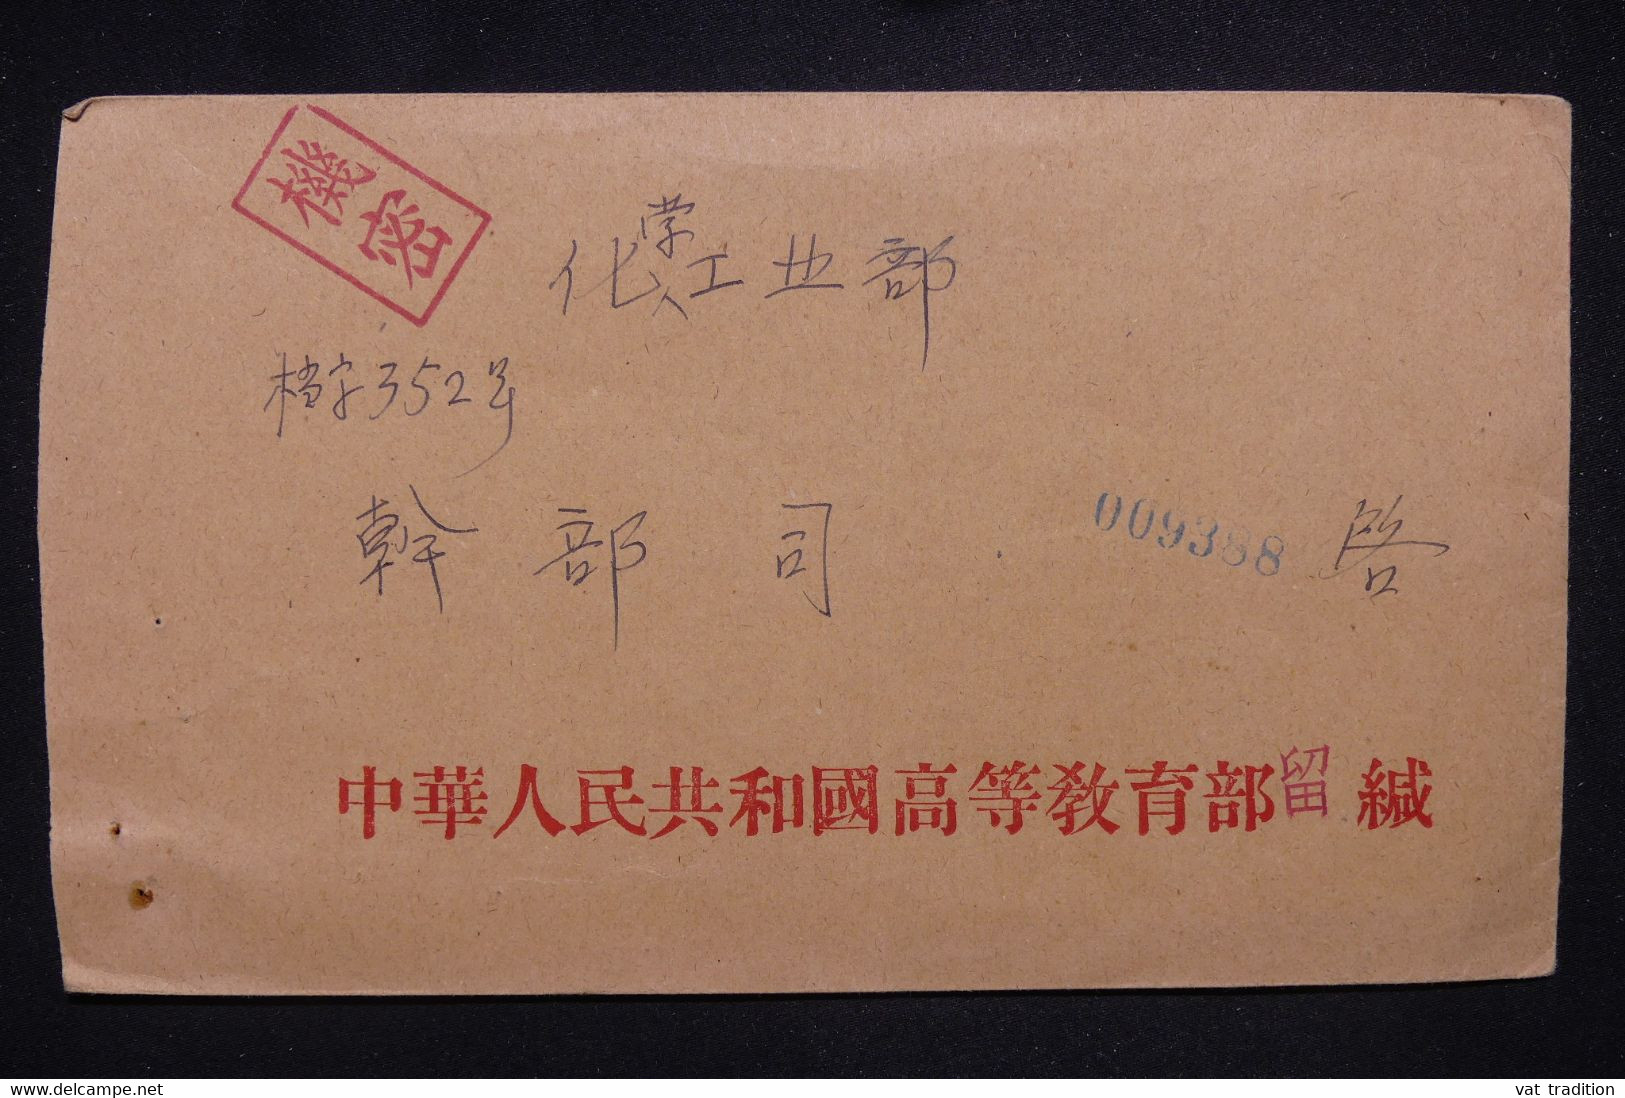 機密
化学工业部
档字352号
幹部司 啓
009388
中華人民共和國高等教育部留 緘
www.delcampe.net
vat tradition